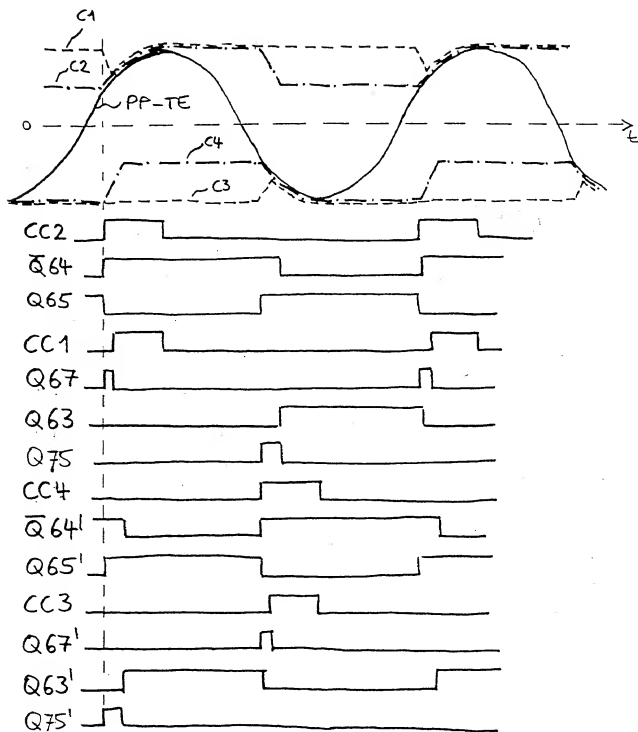 C1
C2
PP-TE
0
t
C4
C3
CC2
Q̅64
Q65
CC1
Q67
Q63
Q75
CC4
Q̅64'
Q65'
CC3
Q67'
Q63'
Q75'